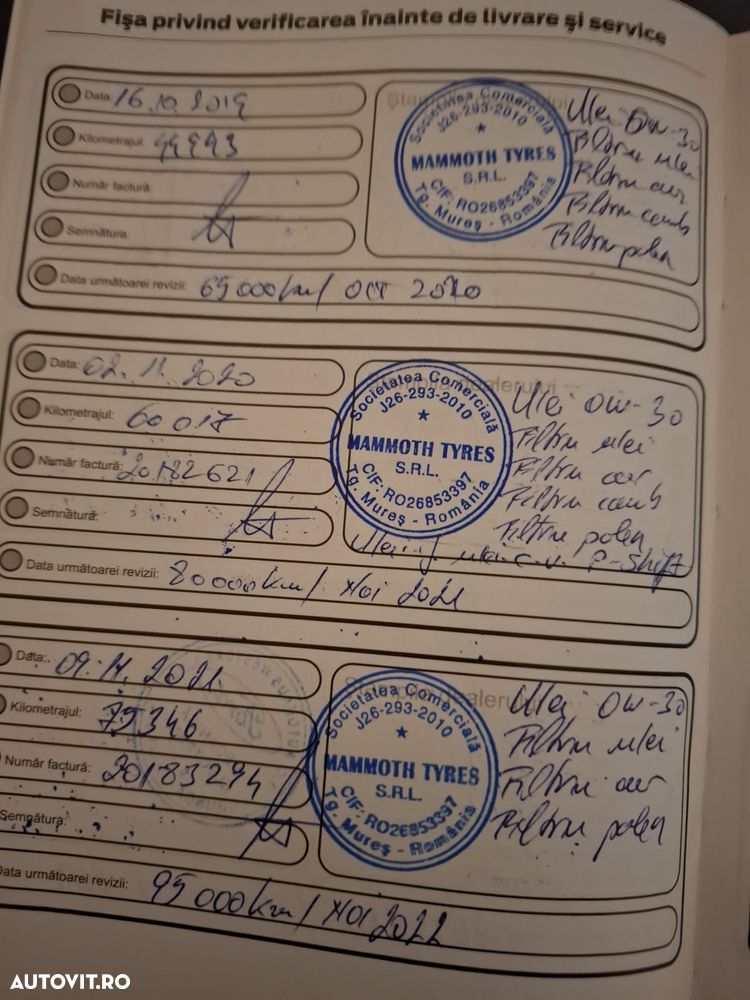 Fișa privind verificarea înainte de livrare și service
Data: 16.10.2019
Kilometrajul:
Număr factură:
Semnătura:
Data următoarei revizii: 65000km/ oct 2020
Societatea Comercială
J26-293-2010
MAMMOTH TYRES
S.R.L.
CIF: RO26853397
Tg. Mureș - România
Ulei 0W-30
Filtru ulei
Filtru aer
Filtru comb
Filtru polen
Data: 02.11.2020
Kilometrajul: 60017
Număr factură: 20182621
Semnătura:
Data următoarei revizii: 80000km/ Noi 2021
Societatea Comercială
J26-293-2010
MAMMOTH TYRES
S.R.L.
CIF: RO26853397
Tg. Mureș - România
Ulei 0W-30
Filtru ulei
Filtru aer
Filtru comb
Filtru polen
P-Shift
Data: 09.11.2021
Kilometrajul: 75346
Număr factură: 20183294
Semnătura:
Data următoarei revizii: 95000km/ Noi 2022
Societatea Comercială
J26-293-2010
MAMMOTH TYRES
S.R.L.
CIF: RO26853397
Tg. Mureș - România
Ulei 0W-30
Filtru ulei
Filtru aer
Filtru polen
AUTOVIT.RO